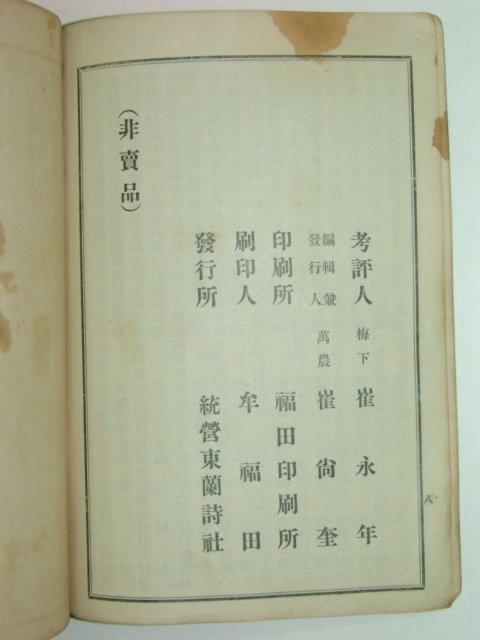 考評人 梅下 崔永年
編輯兼發行人 萬農 崔尙奎
印刷所 福田印刷所
刷印人 牟福田
發行所 統營東蘭詩社
(非賣品)
八